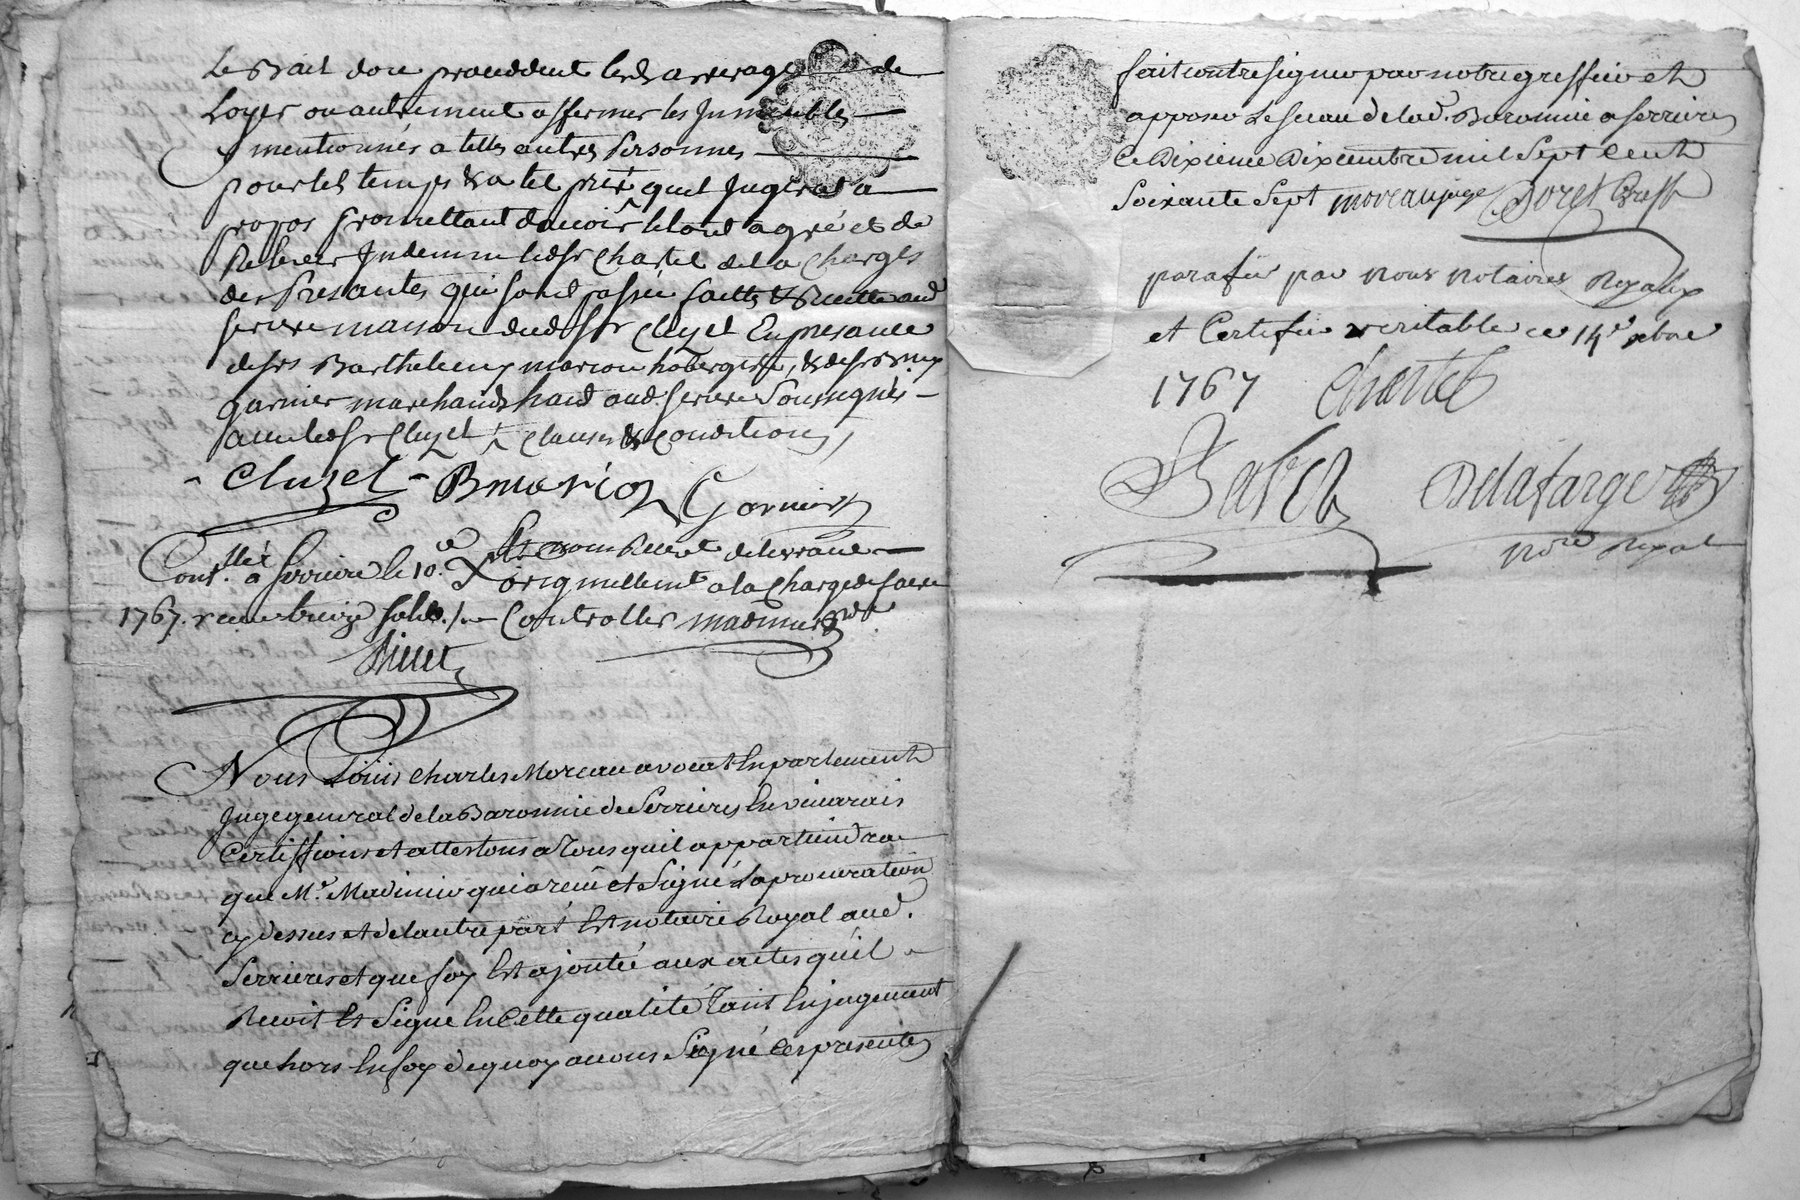 Le Bail dou proceddent lesd arrerages de
Loyer ou autrement affermer les Jmmeubles
y mentionnés a telles autres Personnes
pour tel temps & a tel prix quil Jugera a
propos promettant davoir le tout agreé et de
Relever Jndemne ledsr Chartel de la Charges
des Presantes qui sont passée faitte & Recitte aud
serriere maison dud sr Cluzel En presance
desrs Barthelemy marion hobergiste, & desr
garnier marchands hand aud serriere Soussignés
avec ledsr Cluzel, Clauses & Conditions,
Cluzel Bmarion Garnier
Contllé a Serriere le 10. Xbre
Et nous Recent delivrance
originellement a la Charge de faire
1767. r treize sols
Controller madinier Nre
Nous Louis Charles Moreau avocat En parlement
Juge general de la Baronnie de Serrieres En vivarais
Certiffions et attestons a Tous quil appartiendra
que Mr. Madinier qui a reçû et Signé La procuration
cy dessus et de lautre part Est notaire Royal aud.
Serrieres et que foy Est ajoutée aux actes quil
Recoit Et Signe En Cette qualité Tant En jugement
que hors En foy de quoy avons Signé Ces presentes
fait contresigner par notre greffier et
apposer Le sceau de lad. Baronnie a serrieres
Ce Dixieme Dixcembre mil Sept Cent
Soixante Sept moreau juge Doret Greff
parafée par nous notaires Royaux
et Certifié veritable ce 14e xbre
1767 Chartel
Delafarge
Nore Royal